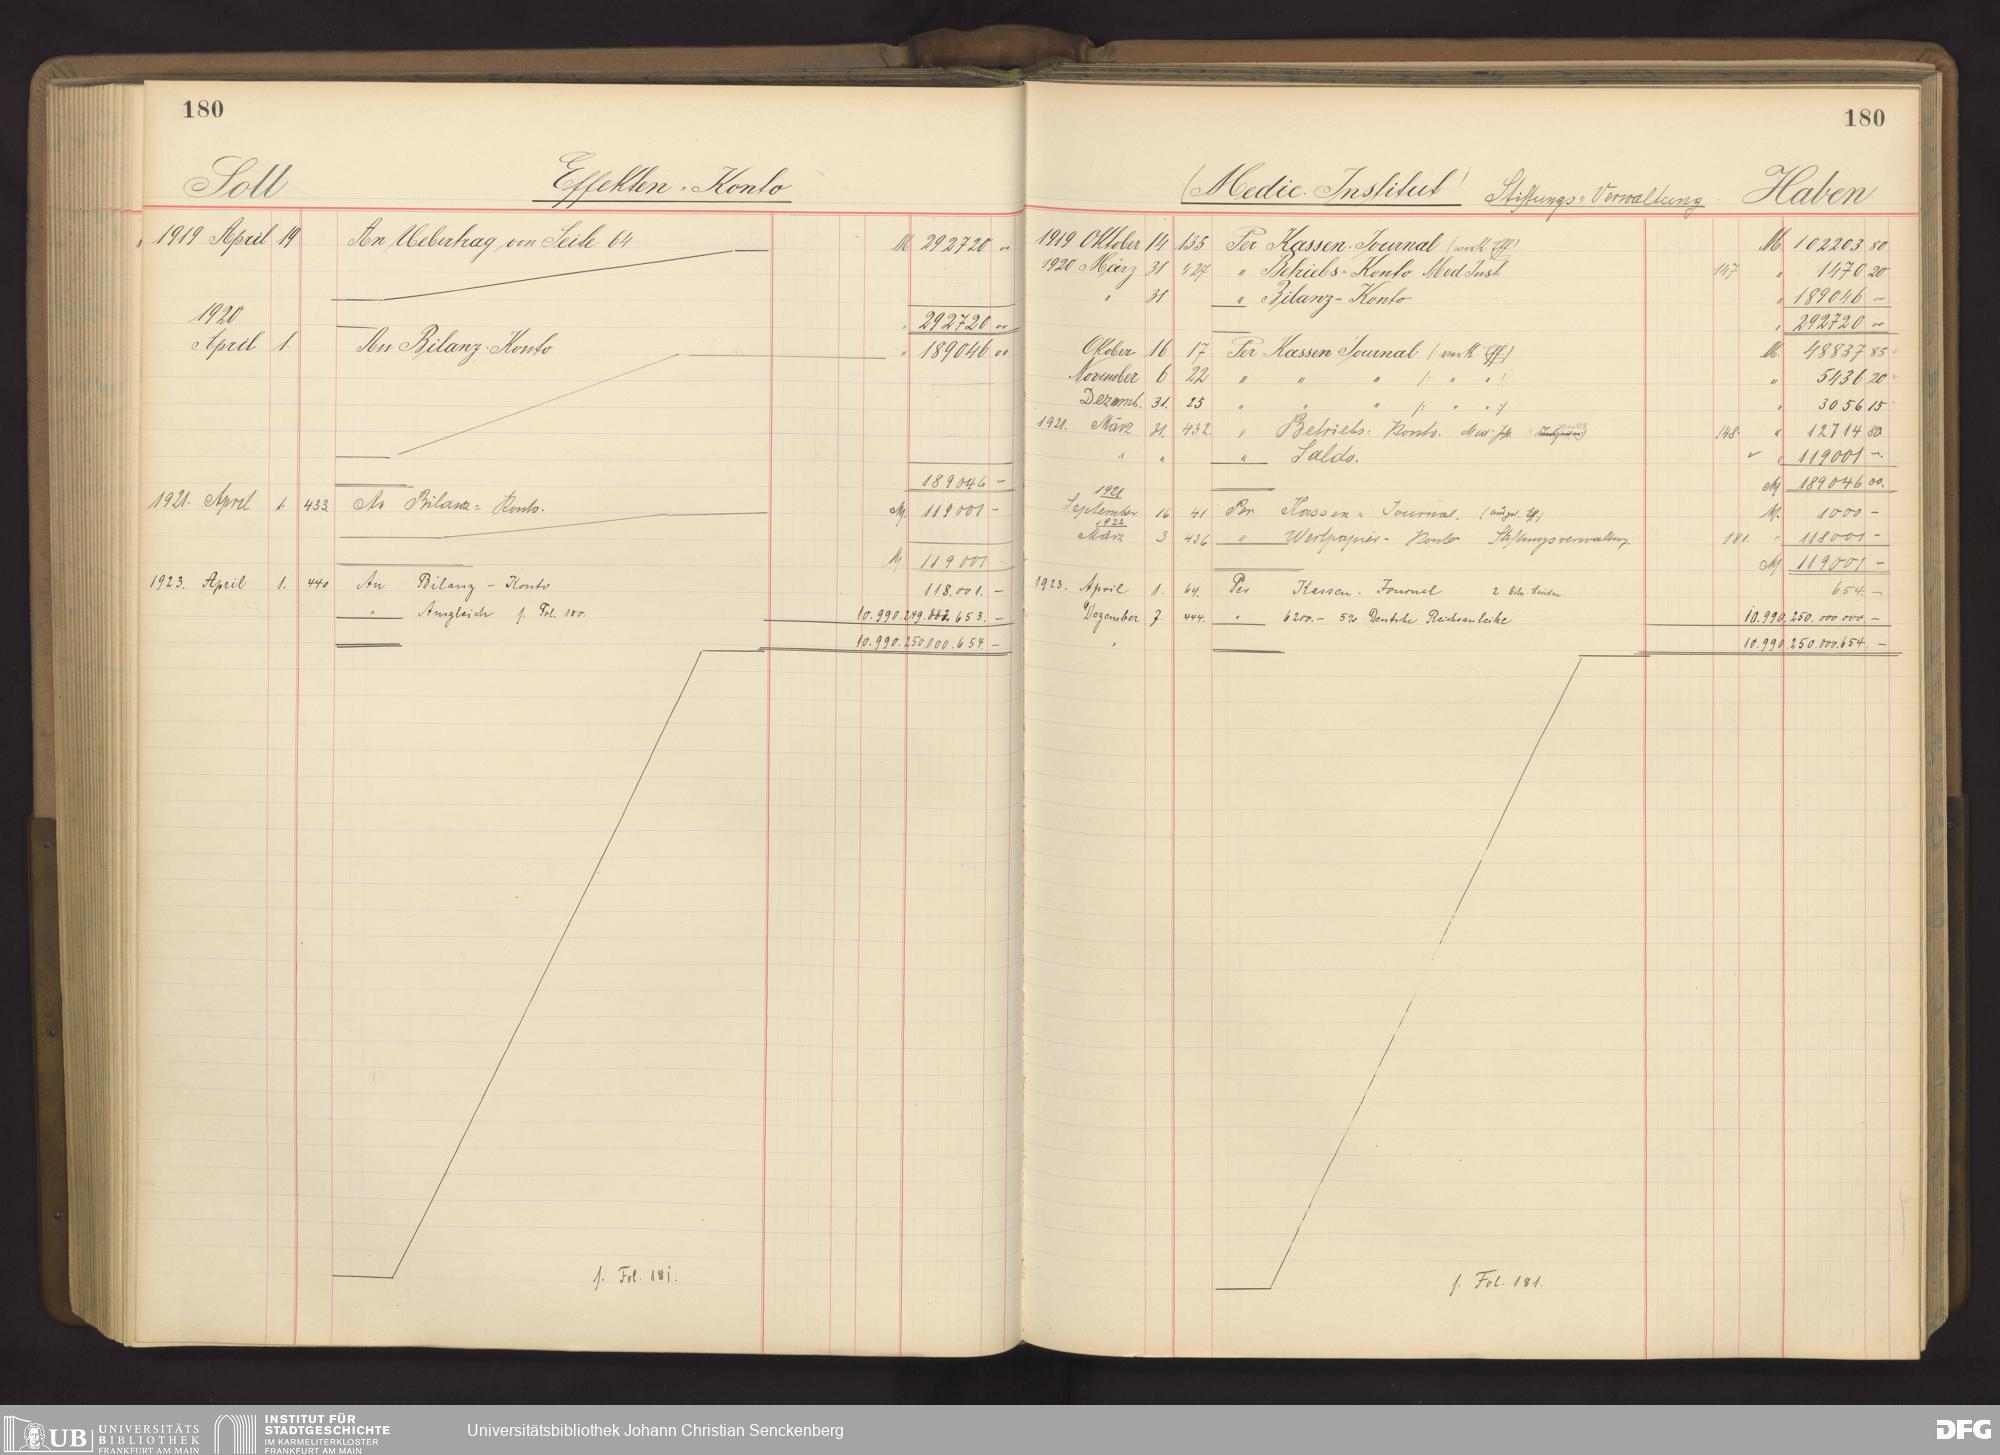 180
Soll Effekten-Konto
1919 April 19 An Uebertrag von Seite 64 M 292720 00
1920
" 292720 00
April 1 An Bilanz-Konto " 189046 00
189046 -
1921. April 1. 433. An Bilanz-Konto. M. 119001 -
M. 119001 -
1923. April 1. 440 An Bilanz - Konto 118.001. -
" Ausgleich f. Fol. 180. 10.990.249.882.653. -
10.990.250.000.654 -
f. Fol. 181.
180
(Medic. Institut) Stiftungs-Verwaltung Haben
1919 Oktober 14 135 Per Kassen-Journal (verk. Eff.) M 102203 80
1920 März 31 427 " Betriebs-Konto Med Inst 147 " 1470 20
" 31 " Bilanz-Konto " 189046 -
" 292720 00
Oktober 16 17 Per Kassen Journal (: verk. Eff:) M. 48837 85
November 6 22 " " " /: " " :/ " 5436 20
Dezemb. 31. 25 " " " /: " " :/ " 3056 15
1921. März 31. 432. " Betriebs-Konto. Med. Inst. 148. " 12714 80
" " " Saldo. ✓ " 119001 -
M 189046 00.
1921
September 16 41 Per Kassen-Journal. (ausgel. Eff.) M. 1000 -
1922
März 3 436 " Wertpapier-Konto Stiftungsverwaltung. 181. " 118001 -
M 119001 -
1923. April 1. 64. Per Kassen-Journal 654 -
Dezember 7. 444. " 6200.- 5% Deutsche Reichsanleihe 10.990.250.000.000. -
" 10.990.250.000.654. -
f. Fol. 181.
UB UNIVERSITÄTS
BIBLIOTHEK
FRANKFURT AM MAIN
INSTITUT FÜR
STADTGESCHICHTE
IM KARMELITERKLOSTER
FRANKFURT AM MAIN
Universitätsbibliothek Johann Christian Senckenberg
DFG